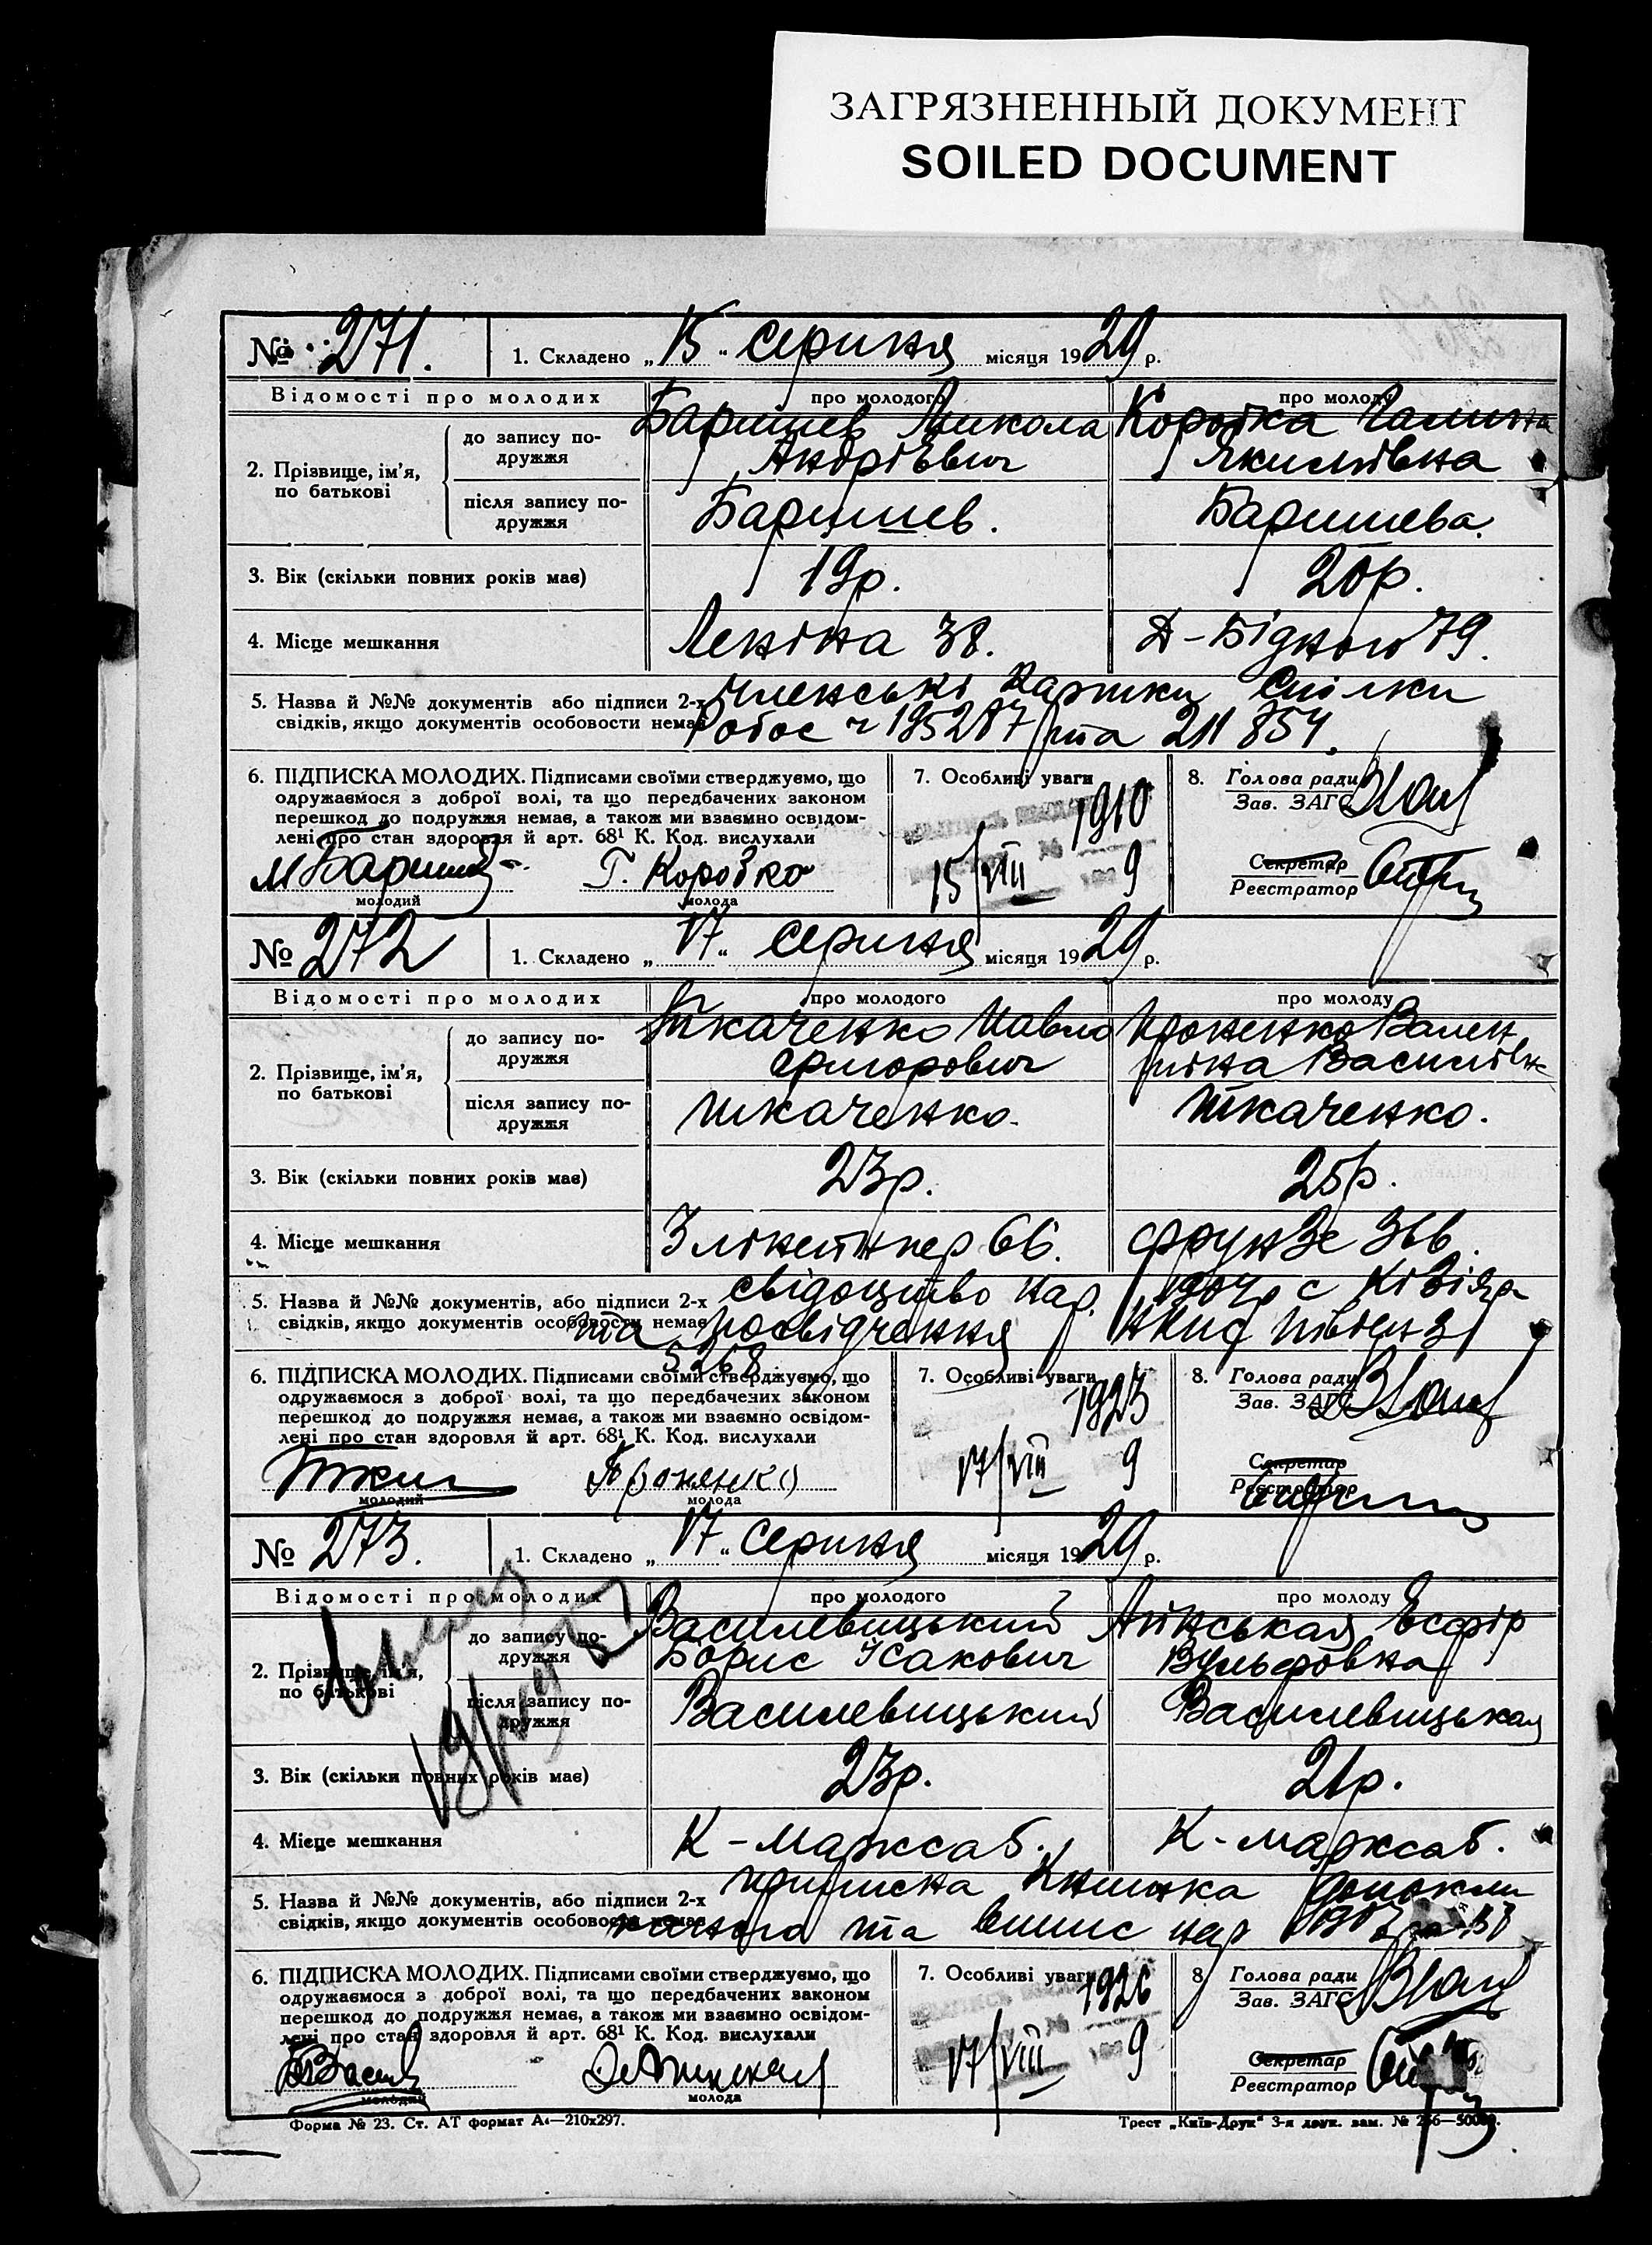 ЗАГРЯЗНЕННЫЙ ДОКУМЕНТ
SOILED DOCUMENT
№ 271. 1. Складено „15“ серпня місяця 1929 р.
Відомості про молодих про молодого про молоду
2. Прізвище, ім'я, по батькові
до запису подружжя Баришев Микола Коробка Галина
Андріевич Якимівна
після запису подружжя Баришев. Баришева.
3. Вік (скільки повних років має) 19р. 20р.
4. Місце мешкання Леніна 38. Д-Бідного 79.
5. Назва й №№ документів або підписи 2-х членські картки спілки
свідків, якщо документів особовости немає Робос ч 195287 та 211 854.
6. ПІДПИСКА МОЛОДИХ. Підписами своїми стверджуємо, що
одружаємося з доброї волі, та що передбачених законом
перешкод до подружжя немає, а також ми взаємно освідом-
лені про стан здоровля й арт. 68¹ К. Код. вислухали
М Баришев Г. Коробко
молодий молода
7. Особливі уваги
1910
15/VIII 9
8. Голова ради
Зав. ЗАГС
Секретар
Реєстратор
№ 272 1. Складено „17“ серпня місяця 1929 р.
Відомості про молодих про молодого про молоду
2. Прізвище, ім'я, по батькові
до запису подружжя Ткаченко Павло Проненко Вален
Григорович тіна Василівн
після запису подружжя Ткаченко. Ткаченко.
3. Вік (скільки повних років має) 23р. 25р.
4. Місце мешкання 66. Фрунзе
5. Назва й №№ документів, або підписи 2-х свідоцтво нар. 1904р с
свідків, якщо документів особовости немає та посвідчення
5268
6. ПІДПИСКА МОЛОДИХ. Підписами своїми стверджуємо, що
одружаємося з доброї волі, та що передбачених законом
перешкод до подружжя немає, а також ми взаємно освідом-
лені про стан здоровля й арт. 68¹ К. Код. вислухали
Проненко
молодий молода
7. Особливі уваги
1923
17/VIII 9
8. Голова ради
Зав. ЗАГС
Секретар
Реєстратор
№ 273. 1. Складено „17“ серпня місяця 1929 р.
Відомості про молодих про молодого про молоду
2. Прізвище, ім'я, по батькові
до запису подружжя Василевицький Есфір
Борис Ісакович Вульфовна
після запису подружжя Василевицький Василевицькая
3. Вік (скільки повних років має) 23р. 21р.
4. Місце мешкання К-Маркса 5. К-Маркса 5.
5. Назва й №№ документів, або підписи 2-х приписна книжка
свідків, якщо документів особовости немає та випис нар 1907
6. ПІДПИСКА МОЛОДИХ. Підписами своїми стверджуємо, що
одружаємося з доброї волі, та що передбачених законом
перешкод до подружжя немає, а також ми взаємно освідом-
лені про стан здоровля й арт. 68¹ К. Код. вислухали
молодий молода
7. Особливі уваги
1926
17/VIII 9
8. Голова ради
Зав. ЗАГС
Секретар
Реєстратор
Форма № 23. Ст. АТ формат А₄—210х297. Трест „Київ-Друк“ 3-я друк. зам. №